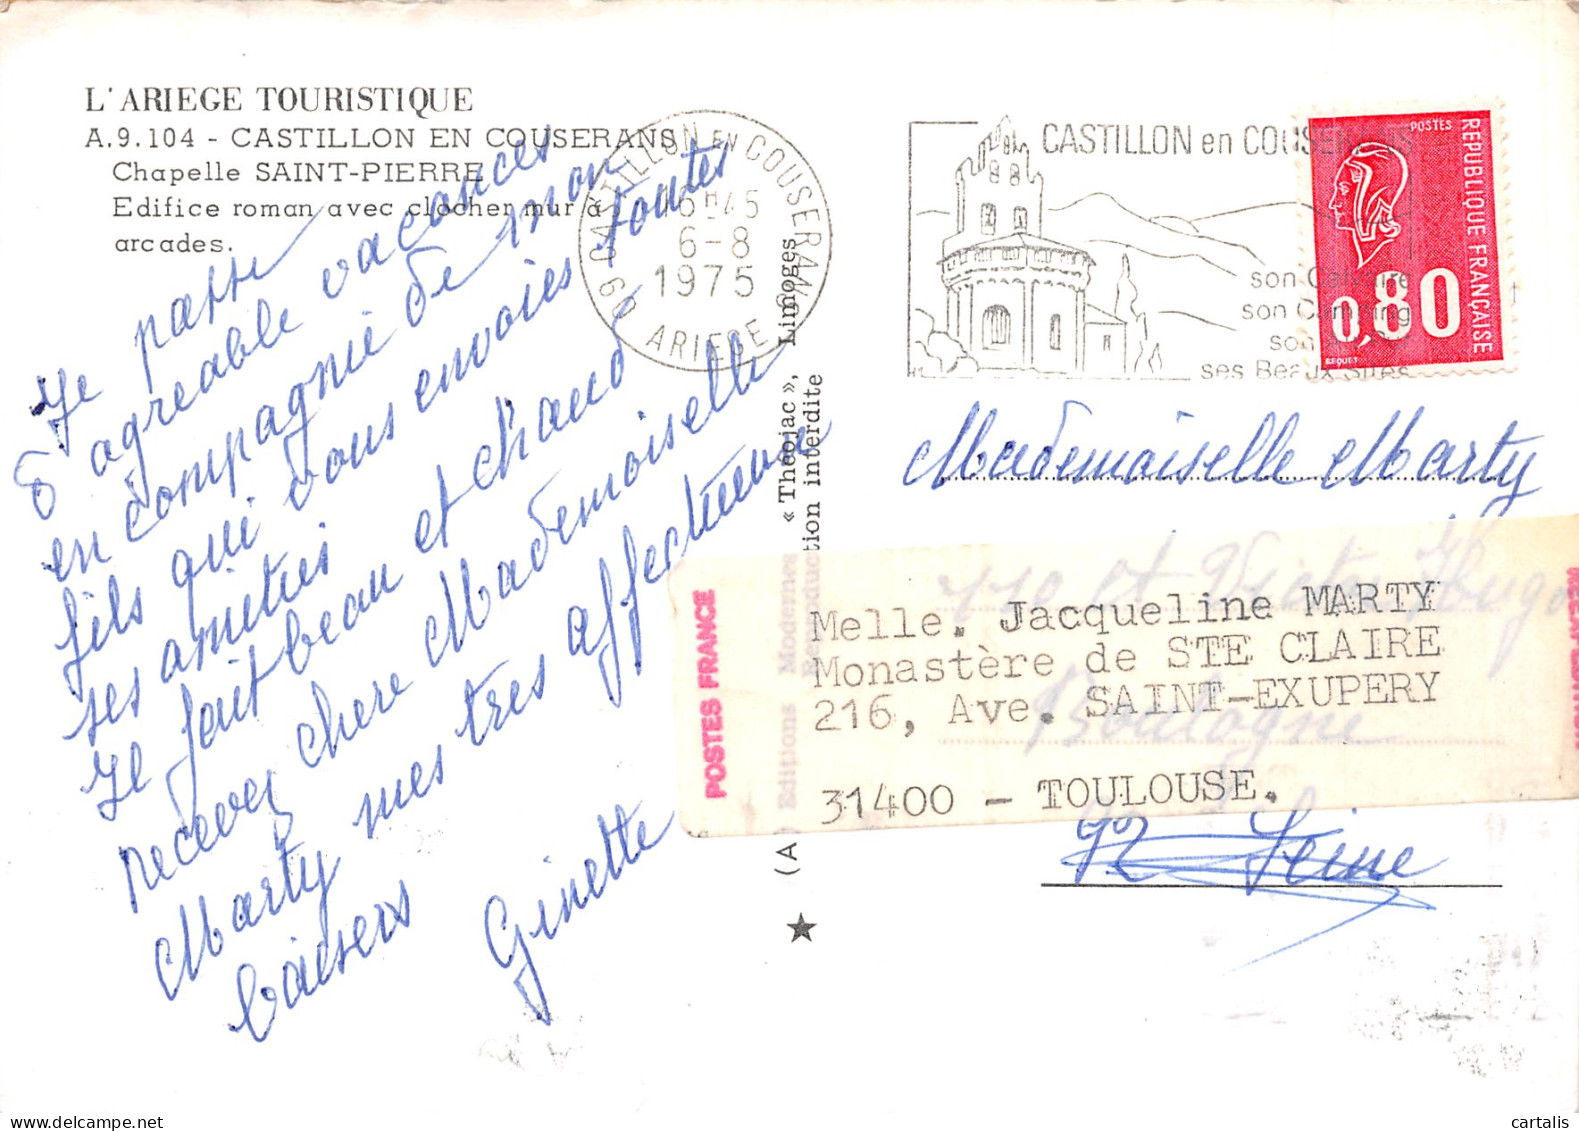 L'ARIEGE TOURISTIQUE
A.9.104 - CASTILLON EN COUSERANS
Chapelle SAINT-PIERRE
Edifice roman avec clocher mur à
arcades.
Je passe
d'agreable vacances
en compagnie de mon
fils qui vous envoies toutes
ses amities
Il fait beau et chaud
Recevez chere Mademoiselle
Marty mes tres affectueux
baisers
Ginette
CASTILLON EN COUSERANS
16H45
6-8
1975
09 ARIEGE
CASTILLON en COUSERANS
son
son Camping
son
ses Beaux Sites
POSTES
REPUBLIQUE FRANÇAISE
0,80
BEQUET
« Théojac », Limoges
Editions Modernes
Reproduction interdite
Mademoiselle Marty
110 Victor Hugo
Boulogne
92 Seine
POSTES FRANCE
Melle. Jacqueline MARTY
Monastère de STE CLAIRE
216, Ave. SAINT-EXUPERY
31400 - TOULOUSE.
cartalis
delcampe.net